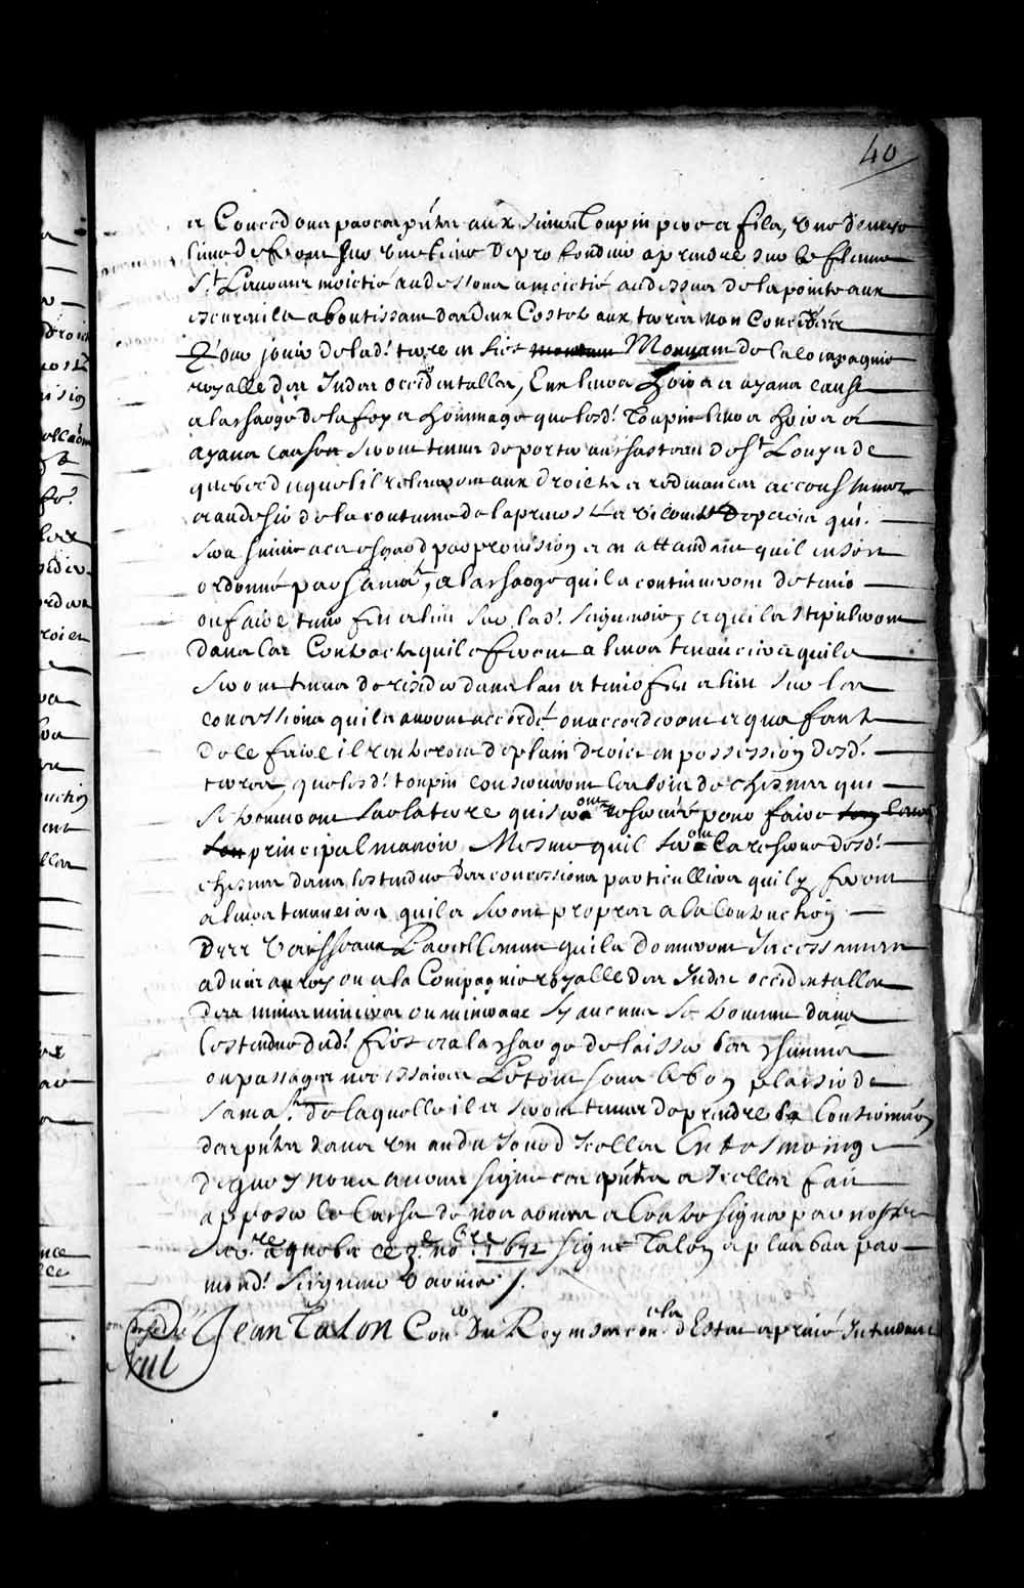 40
et Concedons par ces pntes aux sieurs Toupin pere et fils, une demye
lieue de front sur une lieue de profondeur a prendre sur le fleuve
St Laurens moictié au dessous a moictié au dessus de la pointe aux
escureuils aboutissant des deux Costez aux terres non Concedées
Pour jouir de lad. terre en fief mouvant de la Compagnie
royalle des Indes occidentalles, Eux leurs hoirs et ayans cause
a la charge de la foy et hommage que lesd. Toupin leurs hoirs et
ayans cause seront tenus de porter au chasteau de St Louys de
quebec duquel il releveront aux droicts et redevances accoustumez
et au desir de la coutume de la prevosté et vicomté de paris qui
sera suivie a cet esgard par provision et en attendant quil en soit
ordonné par sa mate, a la charge quils continueront de tenir
ou faire tenir feu et lieu sur lad. seigneurie, et quils stipuleront
dans les Contracts quils feront a leurs tenanciers quils
seront tenus de resider dans lan et tenir feu et lieu sur les
concessions quils auront accordé ou accorderont et qua faute
de ce faire il rentreront de plain droict en possession desd.
terres, que lesd. toupin conserveront les bois de chesnes qui
se trouveront sur la terre quils auront reservée pour faire
principal manoir, Mesme quil feront la reserve desd.
chesnes dans lestendue des concessions particullieres quily feront
a leurs tenanciers quils seront propres a la Construction
des Vaisseaux Pareillement quils donneront Incessament
advis au roy ou a la Compagnie royalle des Indes occidentalles
des mines minieres ou mineraux sy aucuns se trouvent dans
lestendue dud. fief et a la charge de laisser les chemins
ou passages necessaires Le tout sous le bon plaisir de
sa mate. de laquelle il seront tenus de prendre la Confirmaon
des pntes dans un an du Jour d Icelles En tesmoing
de quoy nous avons signé ces pntes a Icelles fait
apposer le Cachet de nos armes et Contresigner par nostre
Secre a quebec ce 3e nobre 1672 signé Talon et plus bas par
mond. Seigneur Varnier /.
Jean Talon Coner Du Roy en ses conls dEstat et privé Intendant